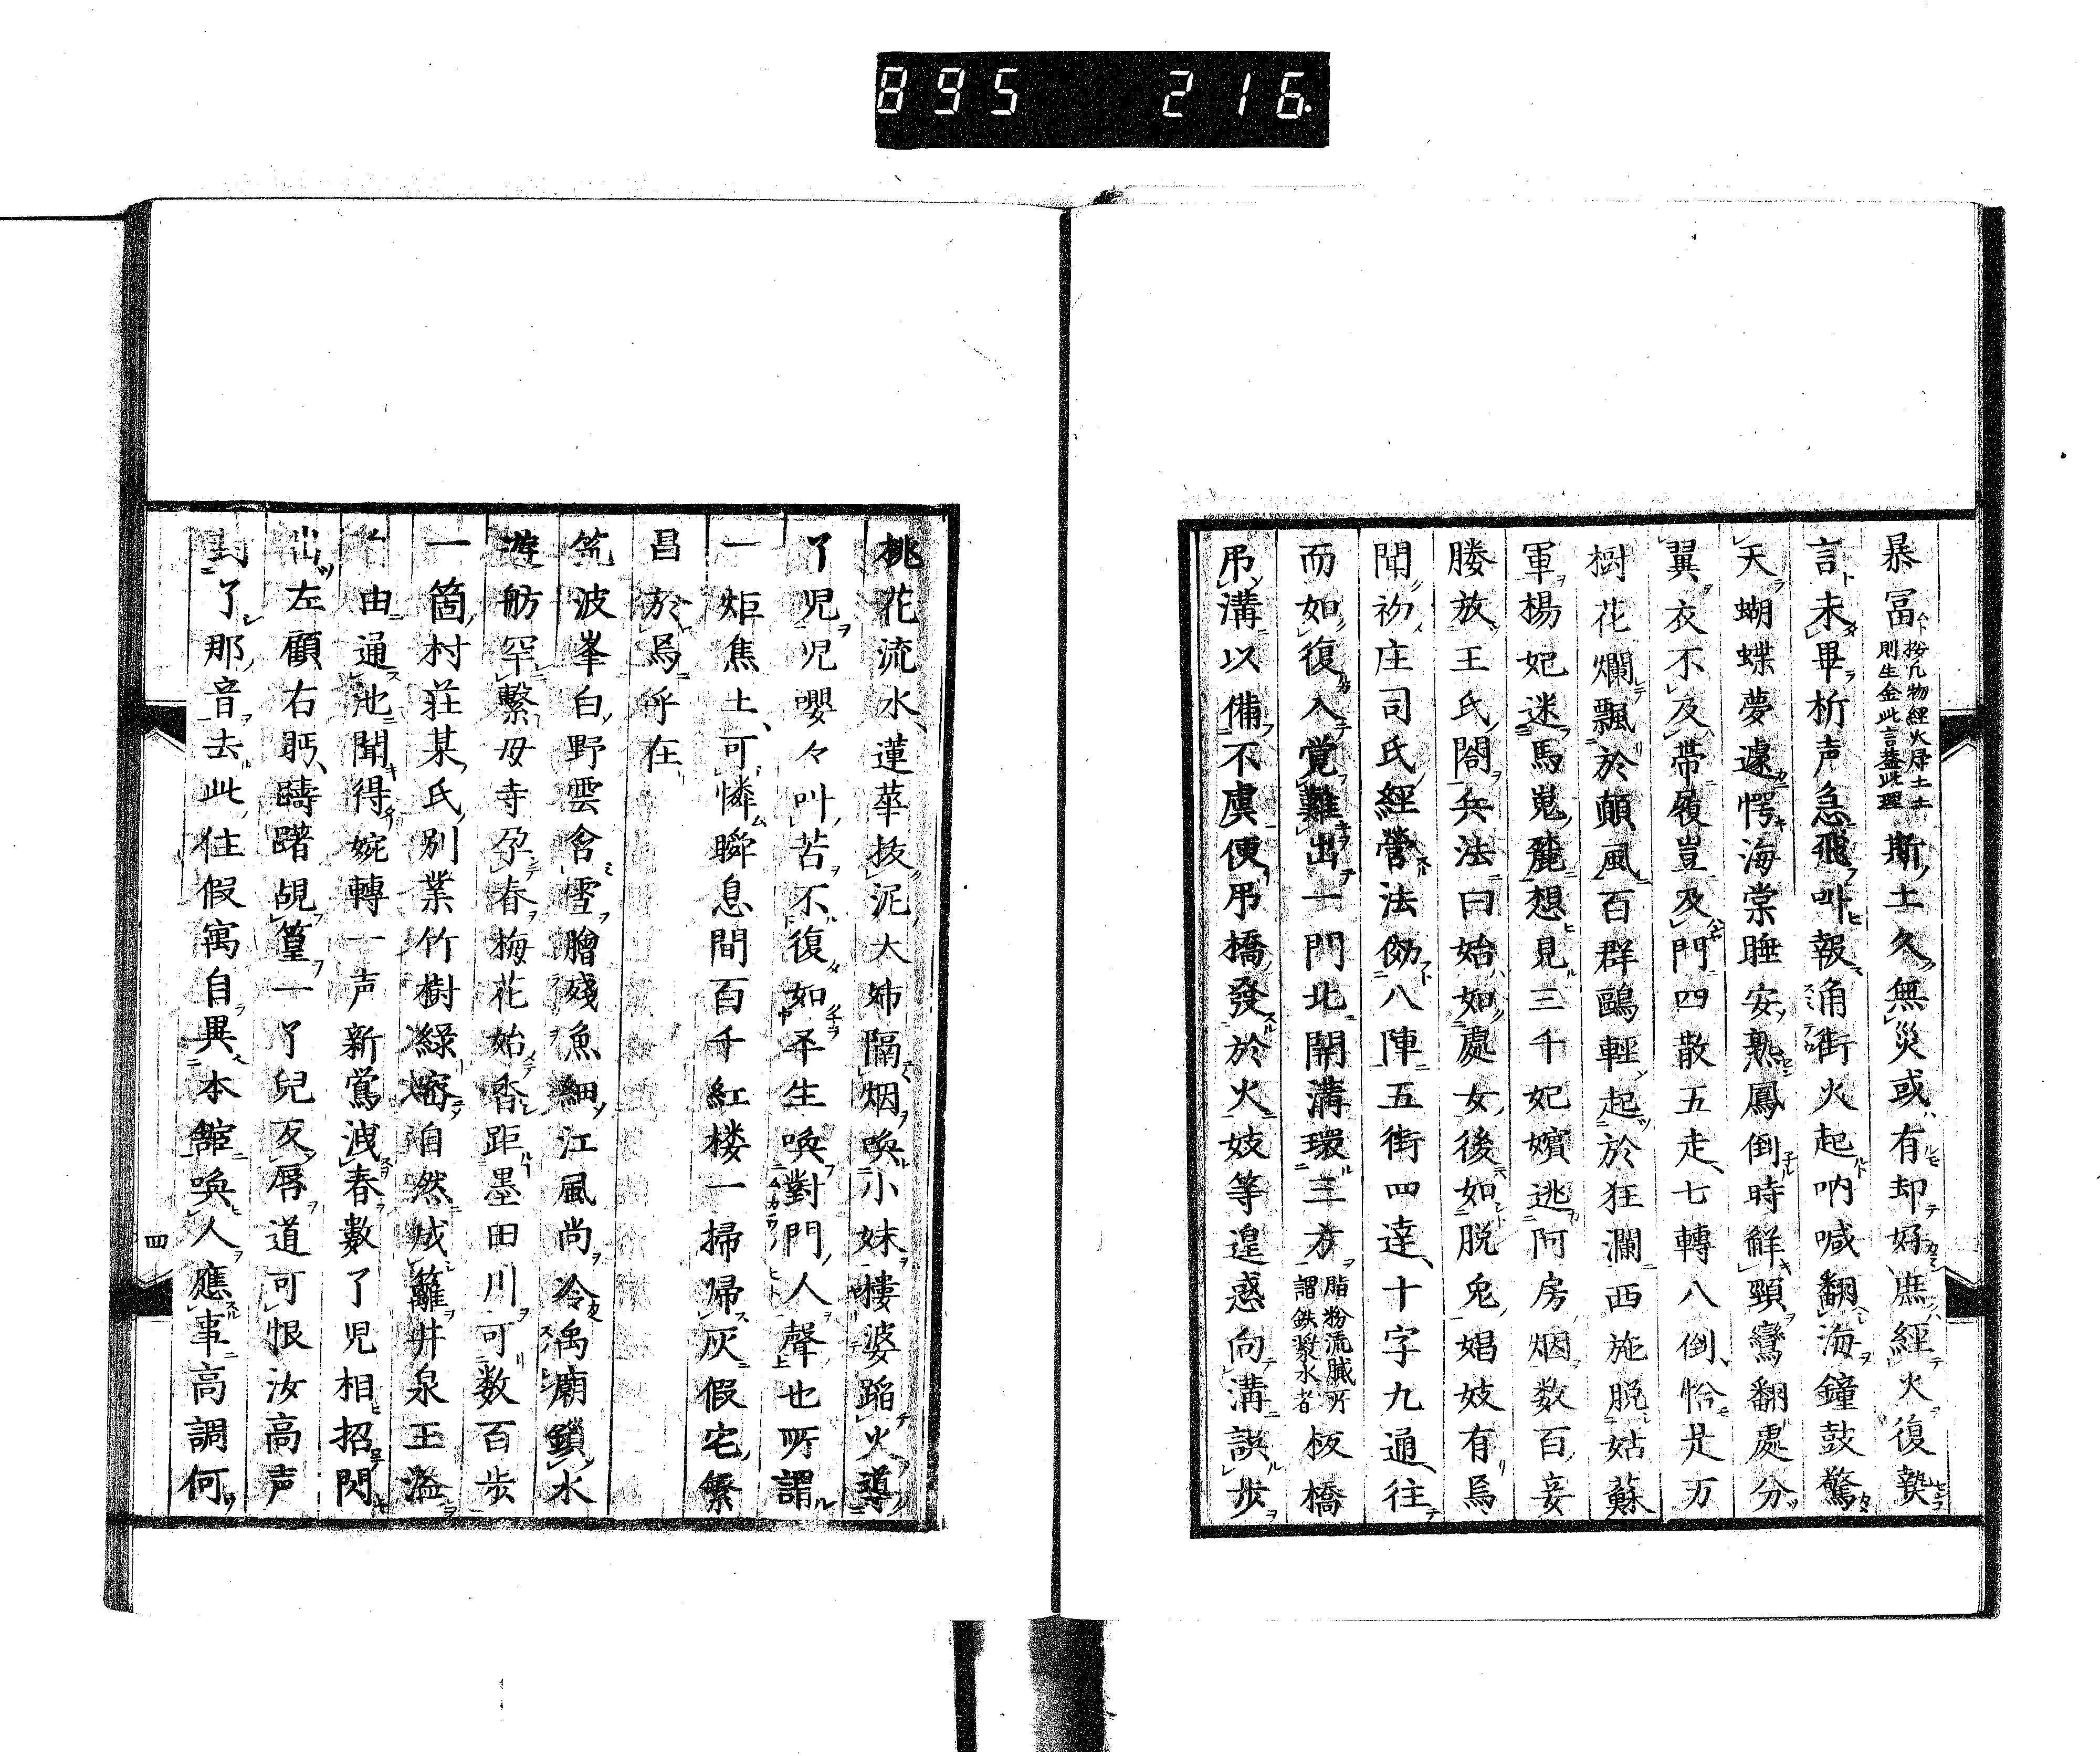 895 216
暴冨按凡物經火尽土土則生金此言蓋此理斯土久無災或有却好庶經火復贄
言未畢柝声急飛叫報角街火起吶喊翻海鐘鼓驚
天蝴蝶夢遽愕海棠睡安熟鳳倒時鮮頸鸞翻處分
翼衣不及帯履豈及門四散五走七轉八倒恰是万
樹花爛飄於顛風百群鷗輕起於狂瀾西施脱姑蘇
軍楊妃迷馬嵬麓想見三千妃嬪逃阿房烟数百妾
媵放王氏閤兵法曰始如處女後如脱兎娼妓有焉
聞初庄司氏經營法倣八陣五街四達十字九通往
而如復入覚難出一門北開溝環三方脂粉流膩所謂鉄漿水者板橋
吊溝以備不虞便吊橋發於火妓等遑惑向溝誤歩
桃花流水蓮華抜泥大姉隔烟喚小妹樓婆蹈火導
丫児児嚶々叫苦不復如平生喚對門人聲也所謂
一炬焦土可憐瞬息間百千紅楼一掃帰灰假宅繁
昌於焉乎在
筑波峯白野雲含雪膾殘魚細江風尚冷禹廟鎖水
遊舫罕繋母寺孕春梅花始香距墨田川可数百歩
一箇村荘某氏別業竹樹緑密自然成籬井泉玉溢
由通池聞得婉轉一声新鶯洩春數丫児相招閃
出左顧右眄躊躇覘篁一丫兒反唇道可恨汝高声
了那音去此住假寓自異本舘喚人應事高調何
四